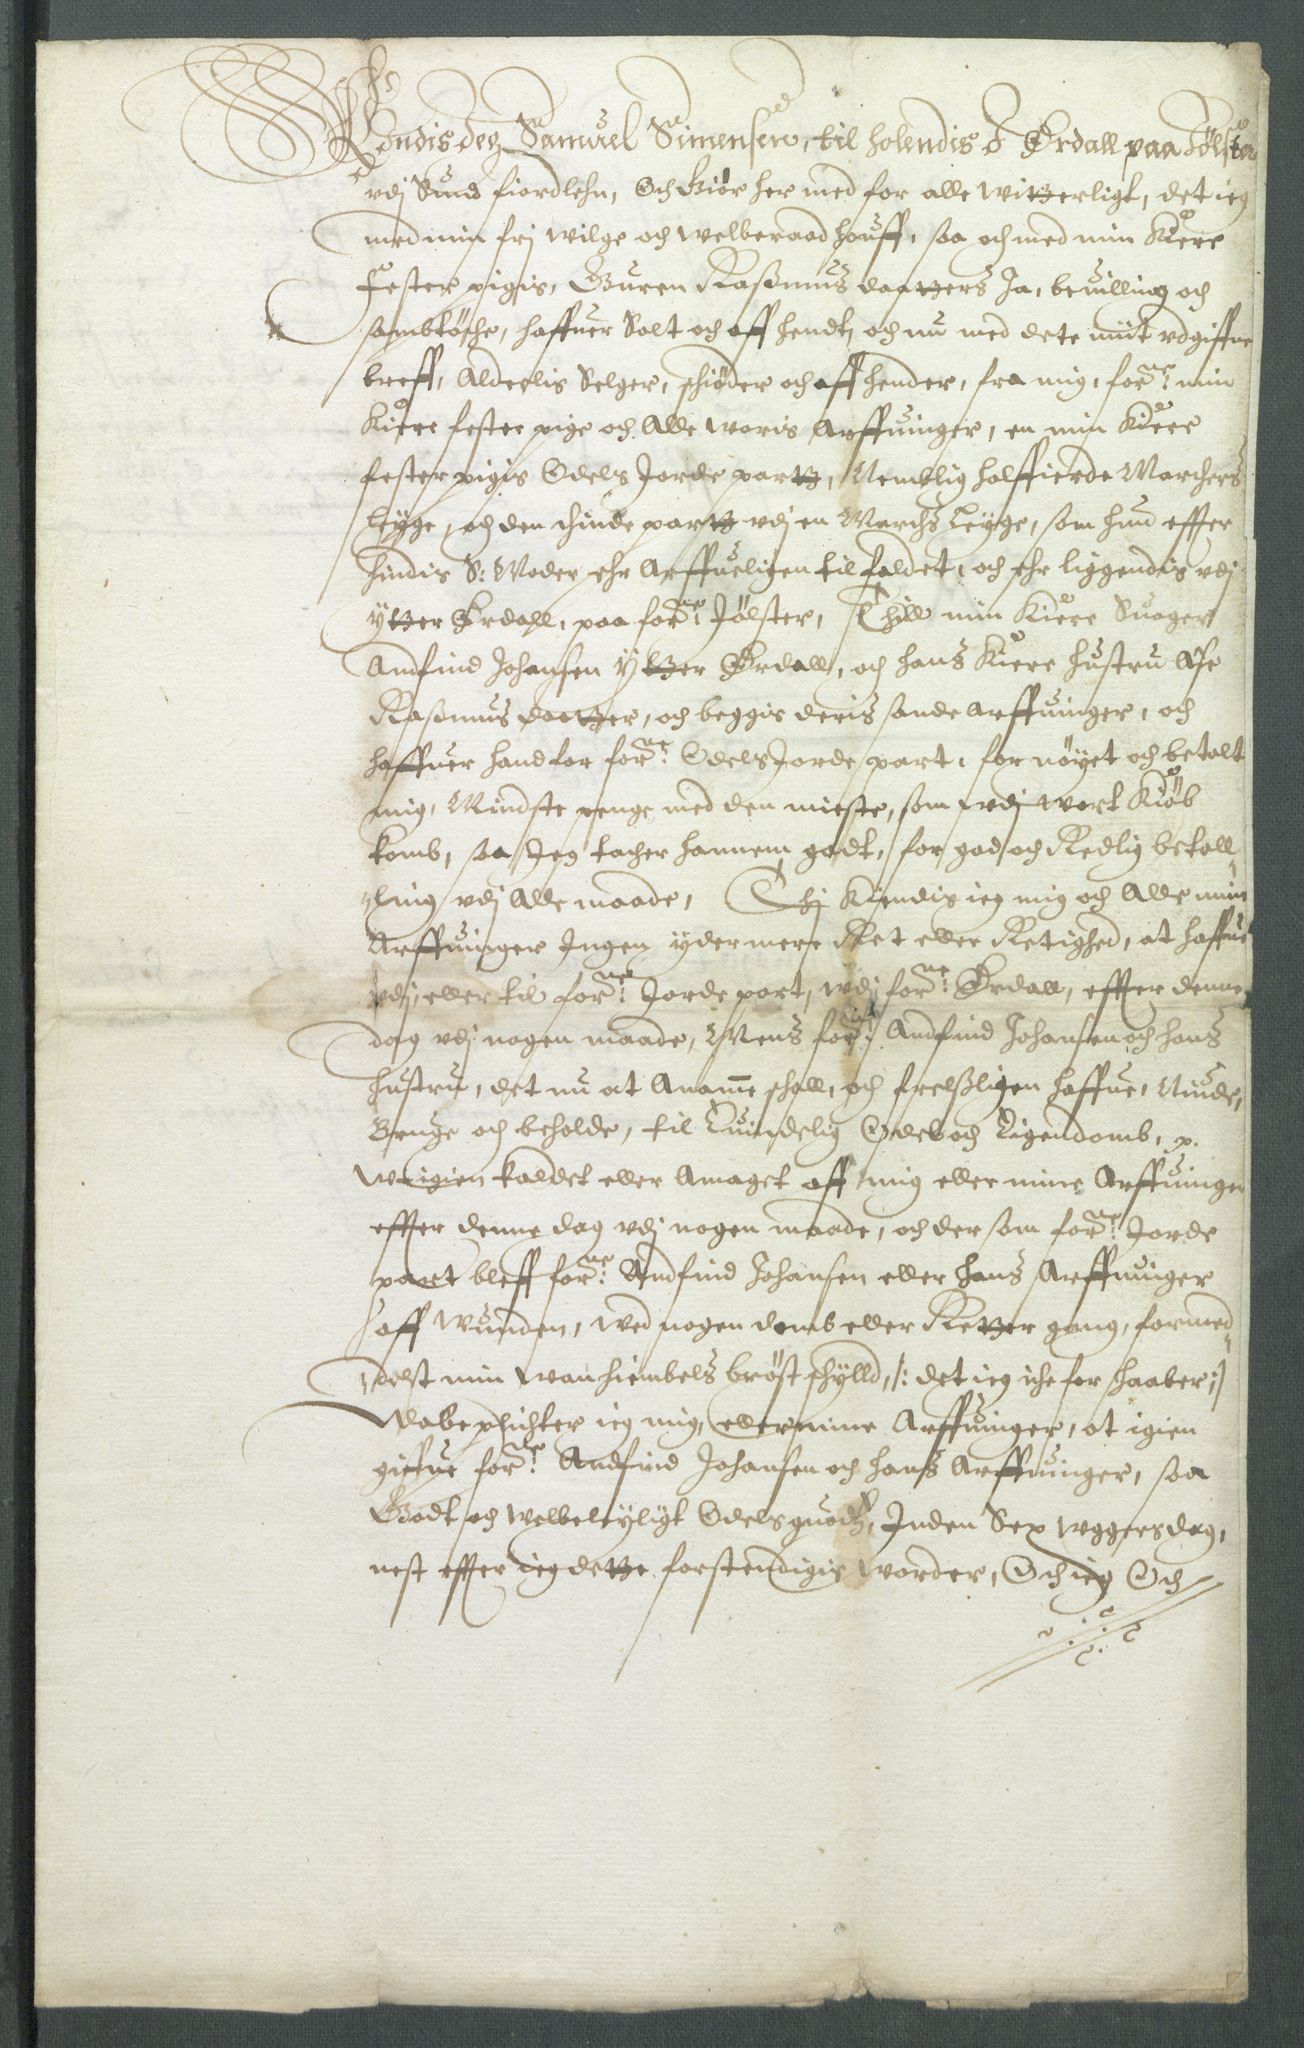 Kiendis Jeg Samuel Simensen, til holendis i Ørdall paa Jölster
vdj Sund fiordlehn, Och Giör her med for alle witterligt, det ieg
med min frj wilge och welberaad houff, saa och med min Kiere
Fester pigis, Guren Rasmus daatters Ja, beuilling och
sambtÿche, haffuer Solt och aff hendt, och nu med dete mit vdgiffne
breff, Aldeelis Selger, schiöder och aff hender, fra mig, forne: min
Kiere fester pige och Alle woris Arffuinger, en min Kiere
fester pigis Odels Jorde partt, Nemblig halffierde Marches
Leÿge, och den thinde partt vdj en Marchs Leÿge, som hind effter
hindis S: Moder ehr Arffueligen til faldet, och ehr liggendis vdj
ÿtter Ørdahl, paa forne: Jölster, Thill min Kiere Suoger
Andfind Johansen ÿtter Ørdall, och hans Kiere hustru Ase
Rasmus daatter, och beggis deris sande arffuinger, och
haffuer hand for forne: Odels Jorde part, for nöÿet och betalt
mig, Mindste penge med den mieste, som vdj wort Kiöb
komb, saa Jeg tacher hannem godt, for god och Redlig betall
ling vdj Alle maade, Thj Kiendis ieg mig och Alle mine
Arffuinger Ingen ÿdermere Ret eller Retighed, at haffue
vdj, eller til forne: Jorde part, wdj forne: Ørdall, effter denne
dag vdj nogen maade, Mens forne: Andfind Johansen och hans
hustru, det nu at Anamme schall, och frelsligen haffue, Niude,
Bruge och beholde, til Euindelig Odel och Eigendomb,
W igien kaldet eller Amaget aff mig eller mine Arffuinger
effter denne dag vdj nogen maade, och der som forne: Jorde
part bleff forne: Andfind Johansen eller hans Arffuinger
aff wunden, wed nogen domb eller Retter gang, formed
delst min wanhiembels bröst schylld, /: det ieg iche for haaber :/
Da beplichter ieg mig, eller mine Arffuinger, at igien
giffue forne: Andfind Johansen och hans Arffuinger, saa
Godt och welbeleÿligt Odels guodtz, Inden Sex vggers dag,
nest effter ieg dette forstendigis worder, Och ieg Och